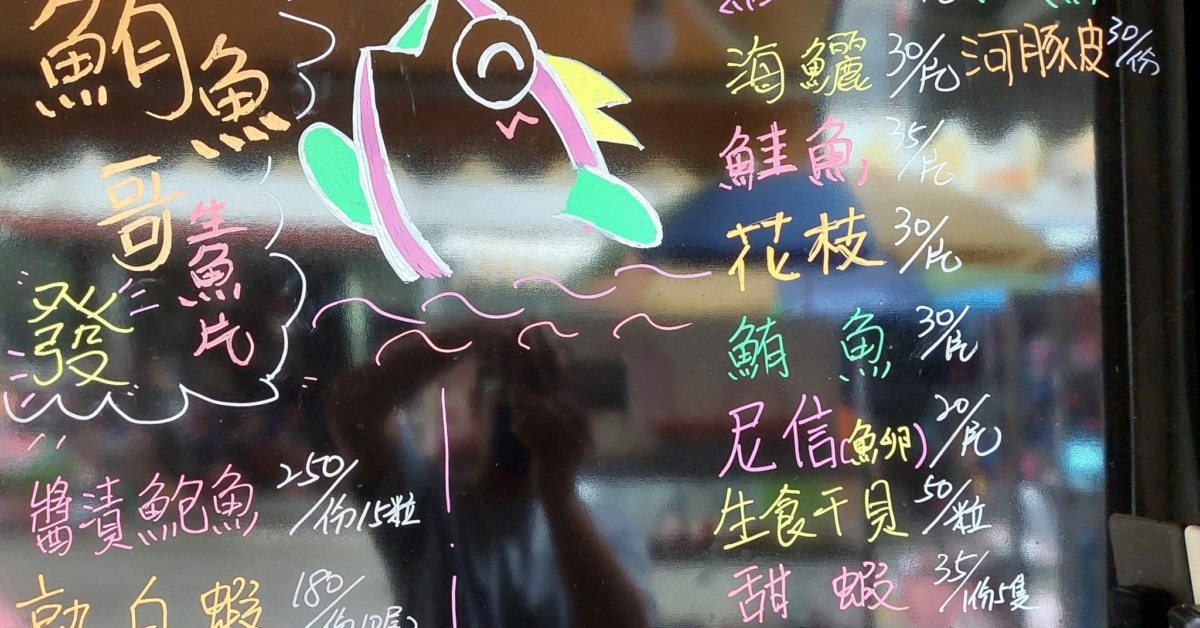 鮪魚
哥
生魚片
發
醬漬鮑魚 250/份15粒
熟白蝦 180/份10尾
海鱺 30/片
河豚皮 30/份
鮭魚 35/片
花枝 30/片
鮪魚 30/片
尼信(魚卵) 20/片
生食干貝 50/粒
甜蝦 35/份5隻